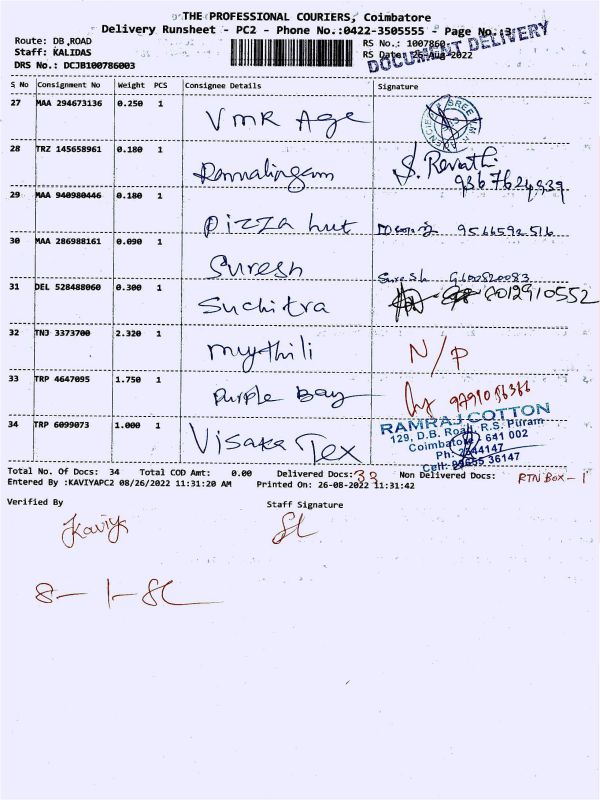 THE PROFESSIONAL COURIERS, Coimbatore
Delivery Runsheet - PC2 - Phone No.:0422-3505555 - Page No.:3
DOCUMENT DELIVERY
Route: DB ROAD
RS No.: 1007860
Staff: KALIDAS
RS Date: 26-Aug-2022
DRS No.: DCJB100786003
S No Consignment No Weight PCS Consignee Details Signature
27 MAA 294673136 0.250 1 VMR Age
28 TRZ 145658961 0.180 1 Rammalingam S. Revathi
9367624939
29 MAA 940980446 0.180 1 Pizza hut 9566592516
30 MAA 286988161 0.090 1 Suresh Suresh 9600520083
31 DEL 528488060 0.300 1 Suchitra
32 TNJ 3373700 2.320 1 mythili N/P
33 TRP 4647095 1.750 1 Purple Bay
34 TRP 6099073 1.000 1 Visaka Tex
RAMRAJ COTTON
129, D.B. Road, R.S. Puram
Coimbatore 641 002
Ph: 2544147
Cell: 36147
Total No. Of Docs: 34 Total COD Amt: 0.00 Delivered Docs: 33 Non Delivered Docs: RTN Box - 1
Entered By :KAVIYAPC2 08/26/2022 11:31:20 AM Printed On: 26-08-2022 11:31:42
Verified By Staff Signature
Kaviya